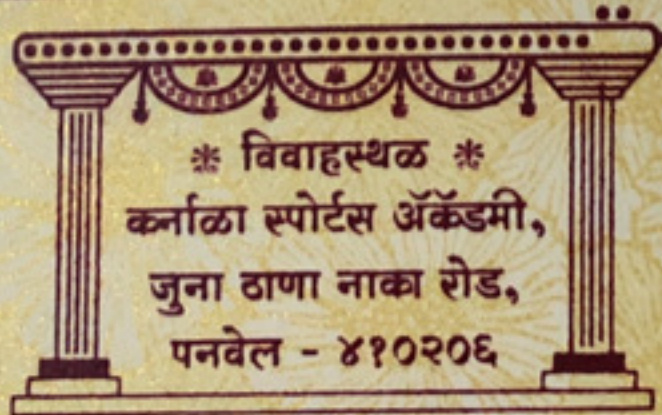 ❋ विवाहस्थळ ❋
कर्नाळा स्पोर्टस ॲकॅडमी,
जुना ठाणा नाका रोड,
पनवेल - ४१०२०६